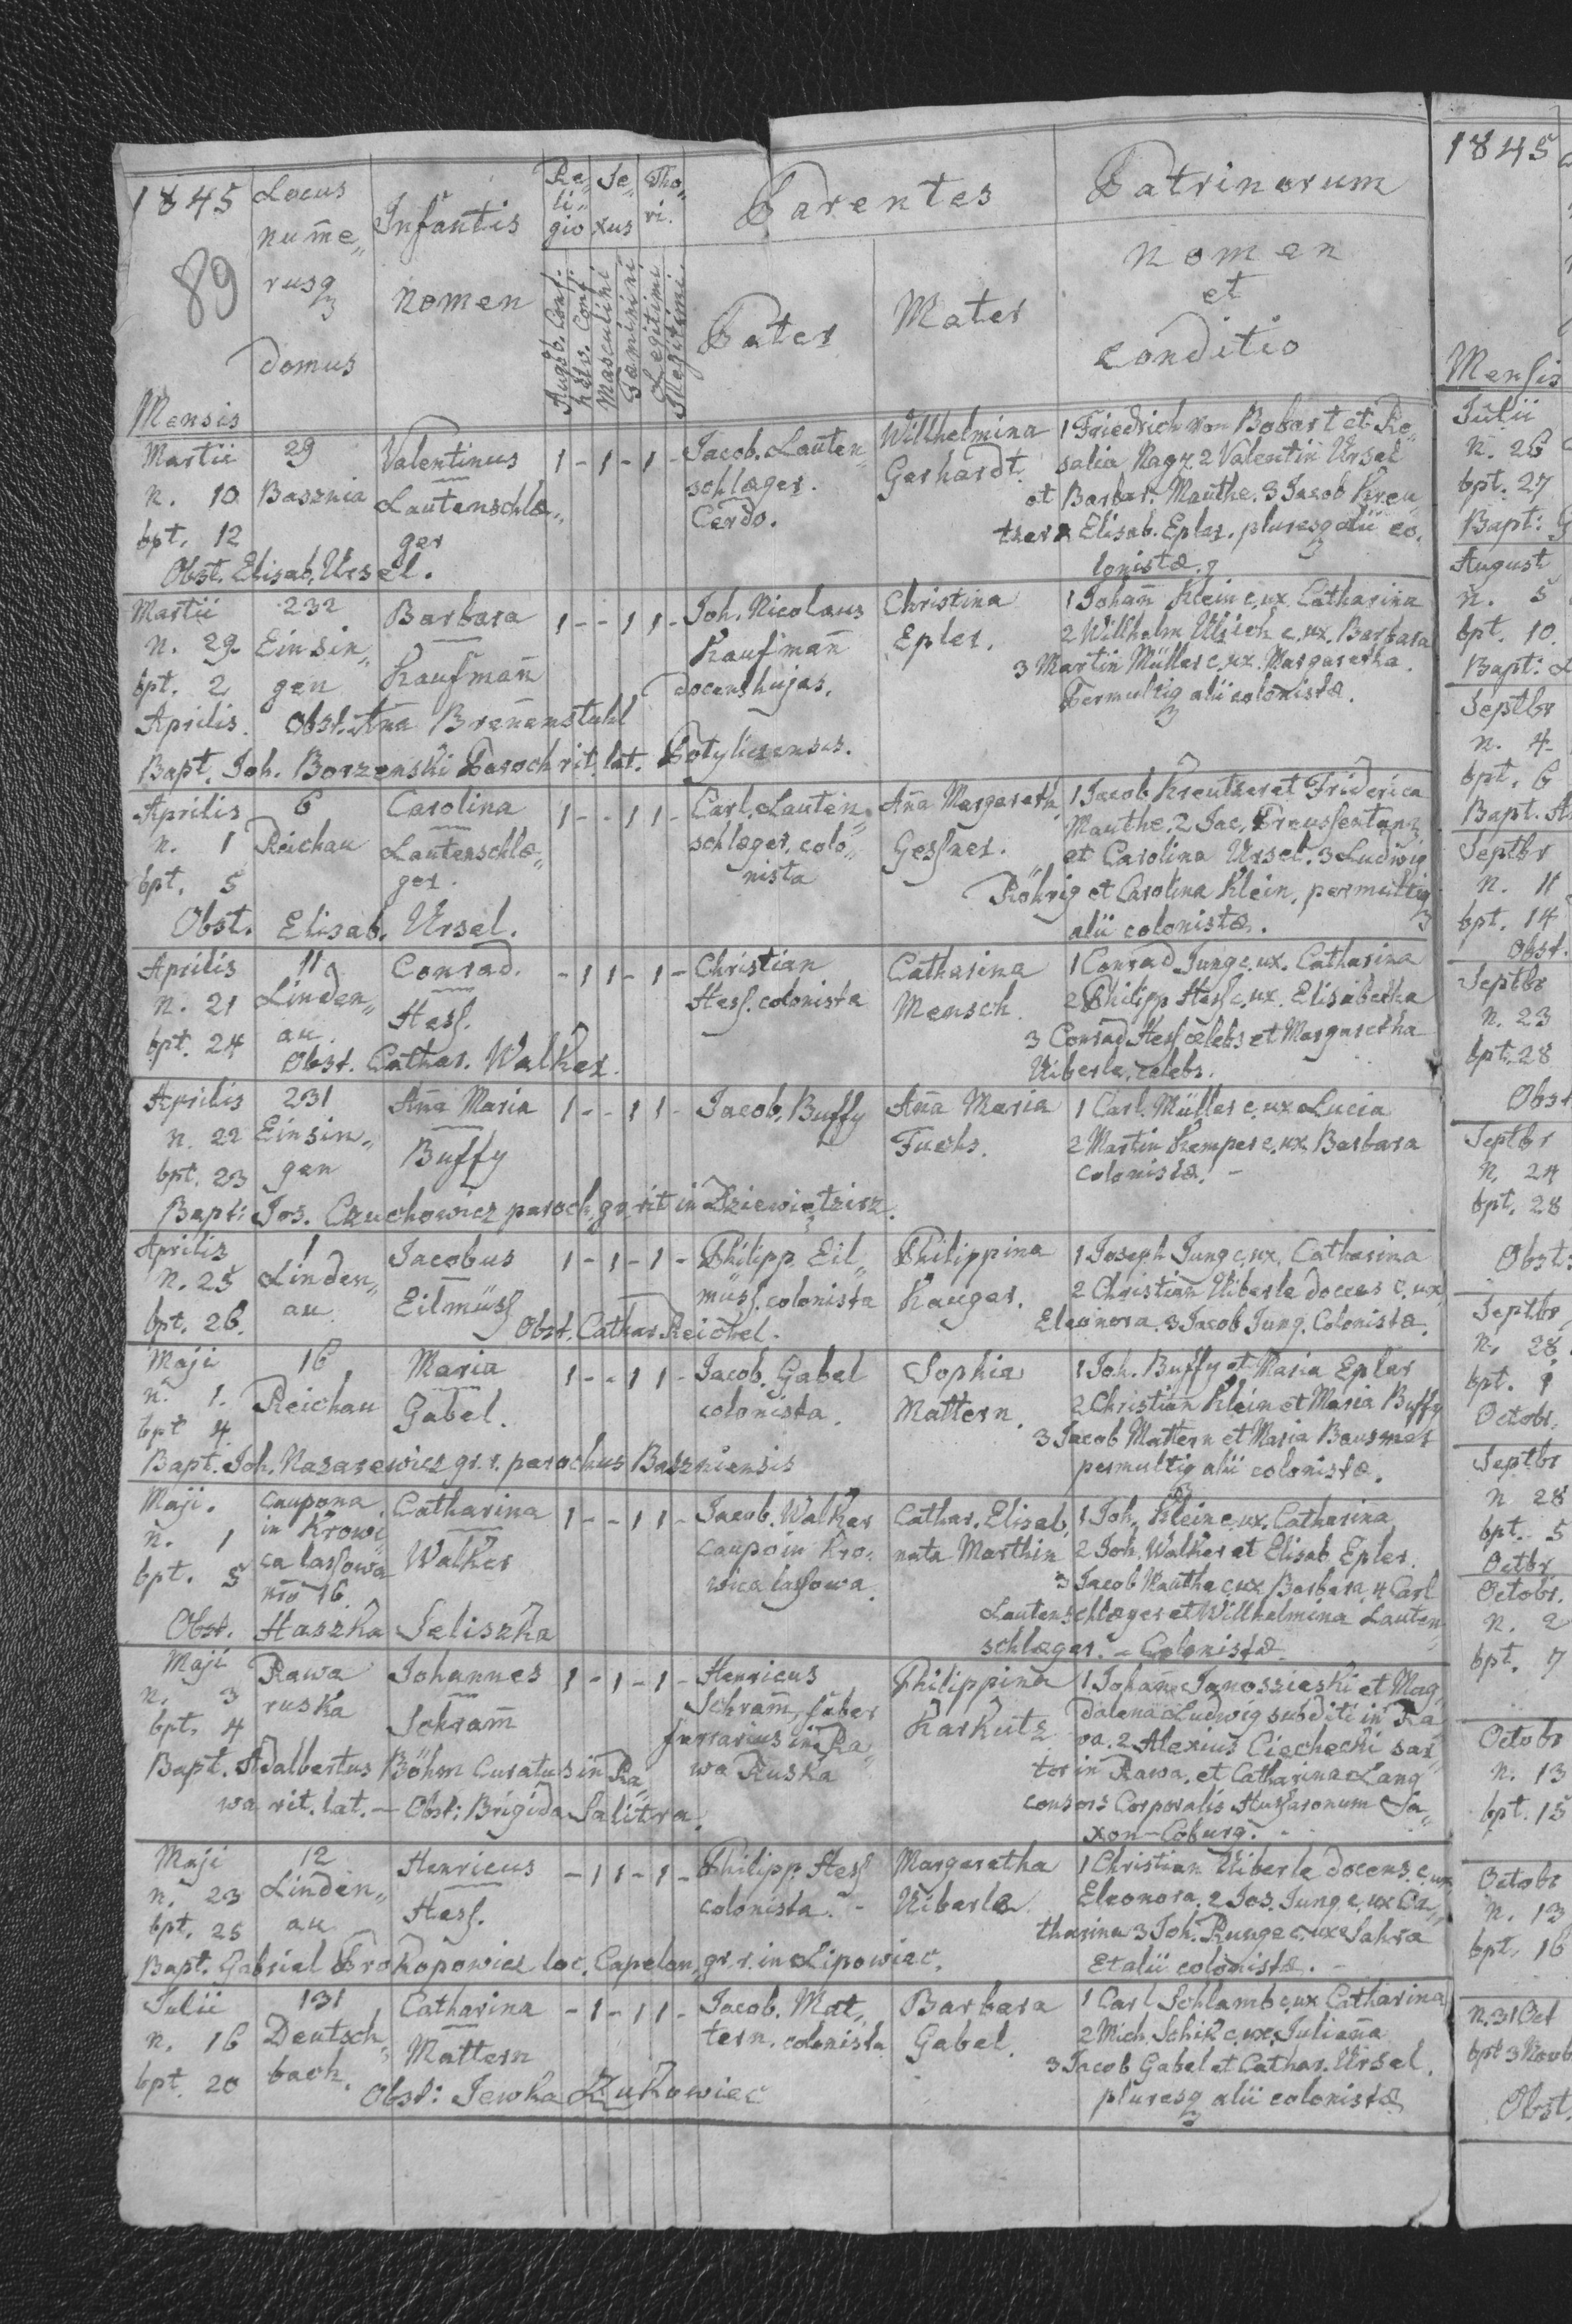 1845
89
Mensis
Locus
num̄e„
rusq
domus
Infantis
nomen
Re„
li„
gio
Se„
xus
Tho„
ri.
Augsb. Conf.
Helv. Conf.
Masculini
Fæminini
Legitimi
Illegitimi.
Parentes
Pater
Mater
Patrinorum
nomen
et
conditio
Martii
n. 10
bpt. 12
29
Basznia
Valentinus
Lautenschlæ„
ger
1 - 1 - 1 -
Jacob. Lauten„
schlæger.
Cerdo.
Willhelmina
Gerhardt.
1 Friedrich von Bobart et Re„
salia Nagy. 2 Valentin Ursel
et Barbar. Mauthe. 3 Jacob Kreu„
tzer & Elisab. Epler. pluresq alii co„
lonistæ.
Obst. Elisab. Ursel.
Martii
n. 29
bpt. 2
Aprilis.
232
Einsin„
gen
Barbara
Kaufman̄
1 - - 1 1 -
Joh. Nicolaus
Kaufman̄
docens hujas.
Christina
Epler.
1 Johan̄ Klein c. ux. Catharina
2 Willhelm Ulrich c. ux. Barbara
3 Martin Müller c. ux. Margaretha.
Permultiq alii colonistæ.
Obst. An̄a Bren̄enstuhl
Bapt. Joh. Borzenski Paroch rit. lat. Potyliczensis.
Aprilis
n. 1
bpt. 5
6
Reichau
Carolina
Lautenschlæ„
ger.
1 - - 1 1 -
Carl. Lauten„
schlæger, colo„
nista
An̄a Margareth.
Gessner.
1 Jacob Kreutzer et Friderica
Mauthe. 2 Jac. Preussentanz
et Carolina Ursel. 3 Ludwig
Röhrig et Carolina Klein, permultiq
alii colonistæ.
Obst. Elisab. Ursel.
Aprilis
n. 21
bpt. 24
11
Linden„
au.
Conrad.
Hess.
- 1 1 - 1 -
Christian
Hess. colonista
Catharina
Mensch.
1 Conrad Jung c. ux. Catharina
2 Philipp Hess c. ux. Elisabetha
3 Conrad Hess cælebs et Margaretha
Uiberle, cælebs.
Obst. Cathar. Walker.
Aprilis
n. 22
bpt. 23
231
Einsin„
gen
An̄a Maria
Buffy
1 - - 1 1 -
Jacob. Buffy
An̄a Maria
Fuchs.
1 Carl. Müller c. ux Lucia
2 Martin Kemper c. ux Barbara
colonistæ. -
Bapt: Jos. Czuchowicz paroch. gr. rit in Dziewiętzirz.
Aprilis
n. 25
bpt. 26.
1
Linden„
au
Jacobus
Eilmüss
1 - 1 - 1 -
Philipp. Eil„
müss. colonista
Philippina
Kauger.
1 Joseph Jung c. ux. Catharina
2 Christian Uiberle docens c. ux.
Eleonora. 3 Jacob Jung. Colonistæ.
Obst. Cathar. Reichel.
Maji
n. 1.
bpt 4
16
Reichau
Maria
Gabel.
1 - - 1 1 -
Jacob. Gabel
colonista.
Sophia
Mattern.
1 Joh. Buffy et Maria Epler
2 Christian Klein et Maria Buffy
3 Jacob Mattern et Maria Bausmer
permultiq alii colonistæ.
Bapt. Joh. Nazarewicz gr. r. parochus Baszniensis
Maji.
n. 1
bpt. 5
caupona
in Krowi„
ca lassowa
nro 16.
Catharina
Walker
1 - - 1 1 -
Jacob. Walker
caupo in Kro„
wica lassowa.
Cathar. Elisab.
nata Marthin
1 Joh. Klein c. ux. Catharina
2 Joh. Walker et Elisab. Epler.
3 Jacob Mauthe c. ux Barbara. 4 Carl
Lautenschlæger et Willhelmina Lauten„
schlæger. - Colonistæ
Obst. Haszka Seliszka
Maji
n. 3
bpt. 4
Rawa
ruska
Johannes
Schram̄
1 - 1 - 1 -
Henricus
Schram̄, faber
ferrarius in Ra„
wa Ruska
Philippina
Karkutz
1 Johan̄ Janossieski et Mag„
dalena Ludwig subditi in Ra„
va. 2 Alexius Ciechecki sar„
tor in Rawa. et Catharina Lang
consors Corporalis Hussaronum Sa„
xon-Coburg.
Bapt. Adalbertus Böhm Curatus in Ra„
wa rit. lat. - Obst: Brigida Salitra.
Maji
n. 23
bpt. 25
12
Linden„
au
Henricus
Hess.
- 1 1 - 1 -
Philipp. Hess
colonista. -
Margaretha
Uiberle.
1 Christian Uiberle docens. c. ux
Eleonora. 2 Jos. Jung c. ux Ca„
tharina 3 Joh. Runge c. ux Sahra
Et alii colonistæ. -
Bapt. Gabriel Prokopowicz loc. Capelan. gr. r. in Lipowiec.
Julii
n. 16
bpt. 20
131
Deutsch„
bach.
Catharina
Mattern
- 1 - 1 1 -
Jacob. Mat„
tern. colonista
Barbara
Gabel.
1 Carl Schlamb c. ux Catharina
2 Mich. Schik c. ux. Julian̄a
3 Jacob Gabel et Cathar. Ursel.
pluresq alii colonistæ
Obst: Jewka Zukowiec
1845
Mensis
Julii
n. 26
bpt. 27
Bapt: G
August
n. 5
bpt. 10.
Bapt:
Septbr
n. 4
bpt. 6
Bapt. A
Septbr
n. 11
bpt. 14
Obst.
Septbr
n. 23
bpt. 28
Obst
Septbr
n. 24
bpt. 28
Obst:
Septbr
n. 28.
bpt. 1
Octobr.
Septbr
n 28
bpt. 5
Octbr
Octobr.
n. 2
bpt. 7
Octobr
n. 13
bpt. 15
Octobr
n. 13
bpt. 16
n. 31 Oct
bpt 3 Novb
Obst.